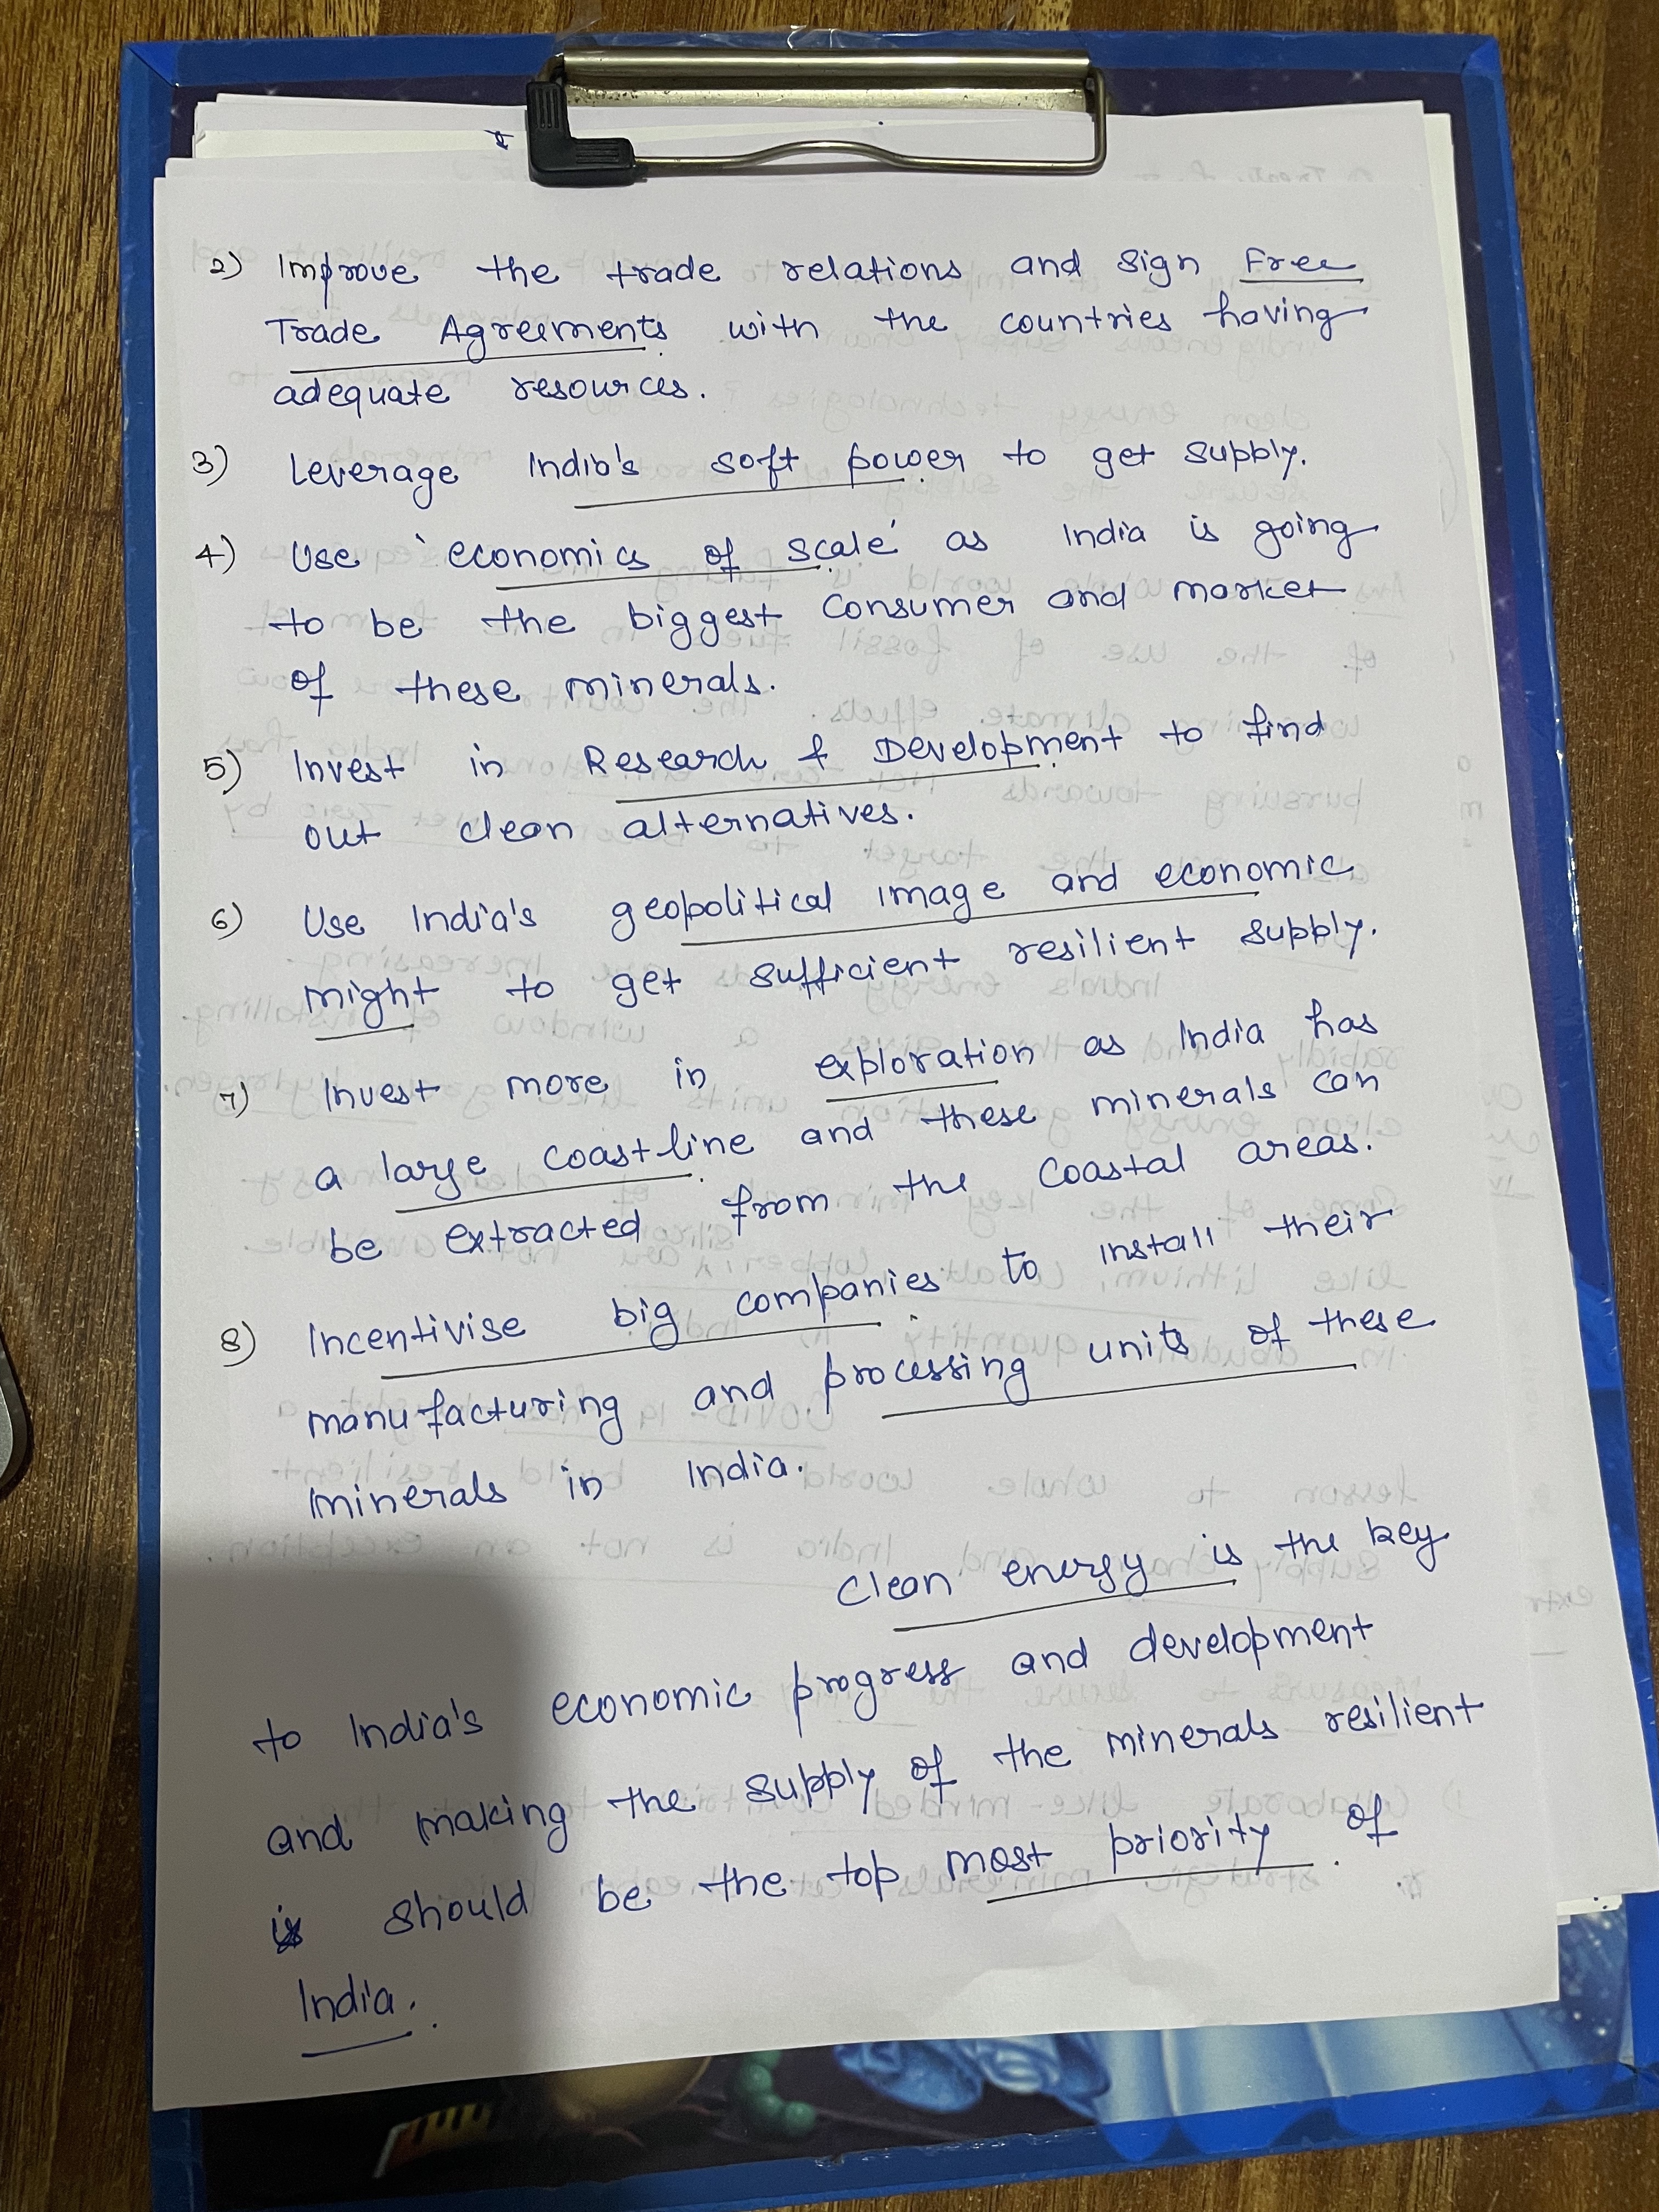 2) Improve the trade relations and sign Free
Trade Agreements with the countries having
adequate resources.
3) Leverage India's soft power to get supply.
4) Use 'economics of scale' as India is going
to be the biggest consumer and market
of these minerals.
5) Invest in Research & Development to find
out clean alternatives.
6) Use India's geopolitical image and economic
might to get sufficient resilient supply.
7) Invest more in exploration as India has
a large coastline and these minerals can
be extracted from the coastal areas.
8) Incentivise big companies to install their
manufacturing and processing units of these
minerals in India.
Clean energy is the key
to India's economic progress and development
and making the supply of the minerals resilient
should be the top most priority of
India.